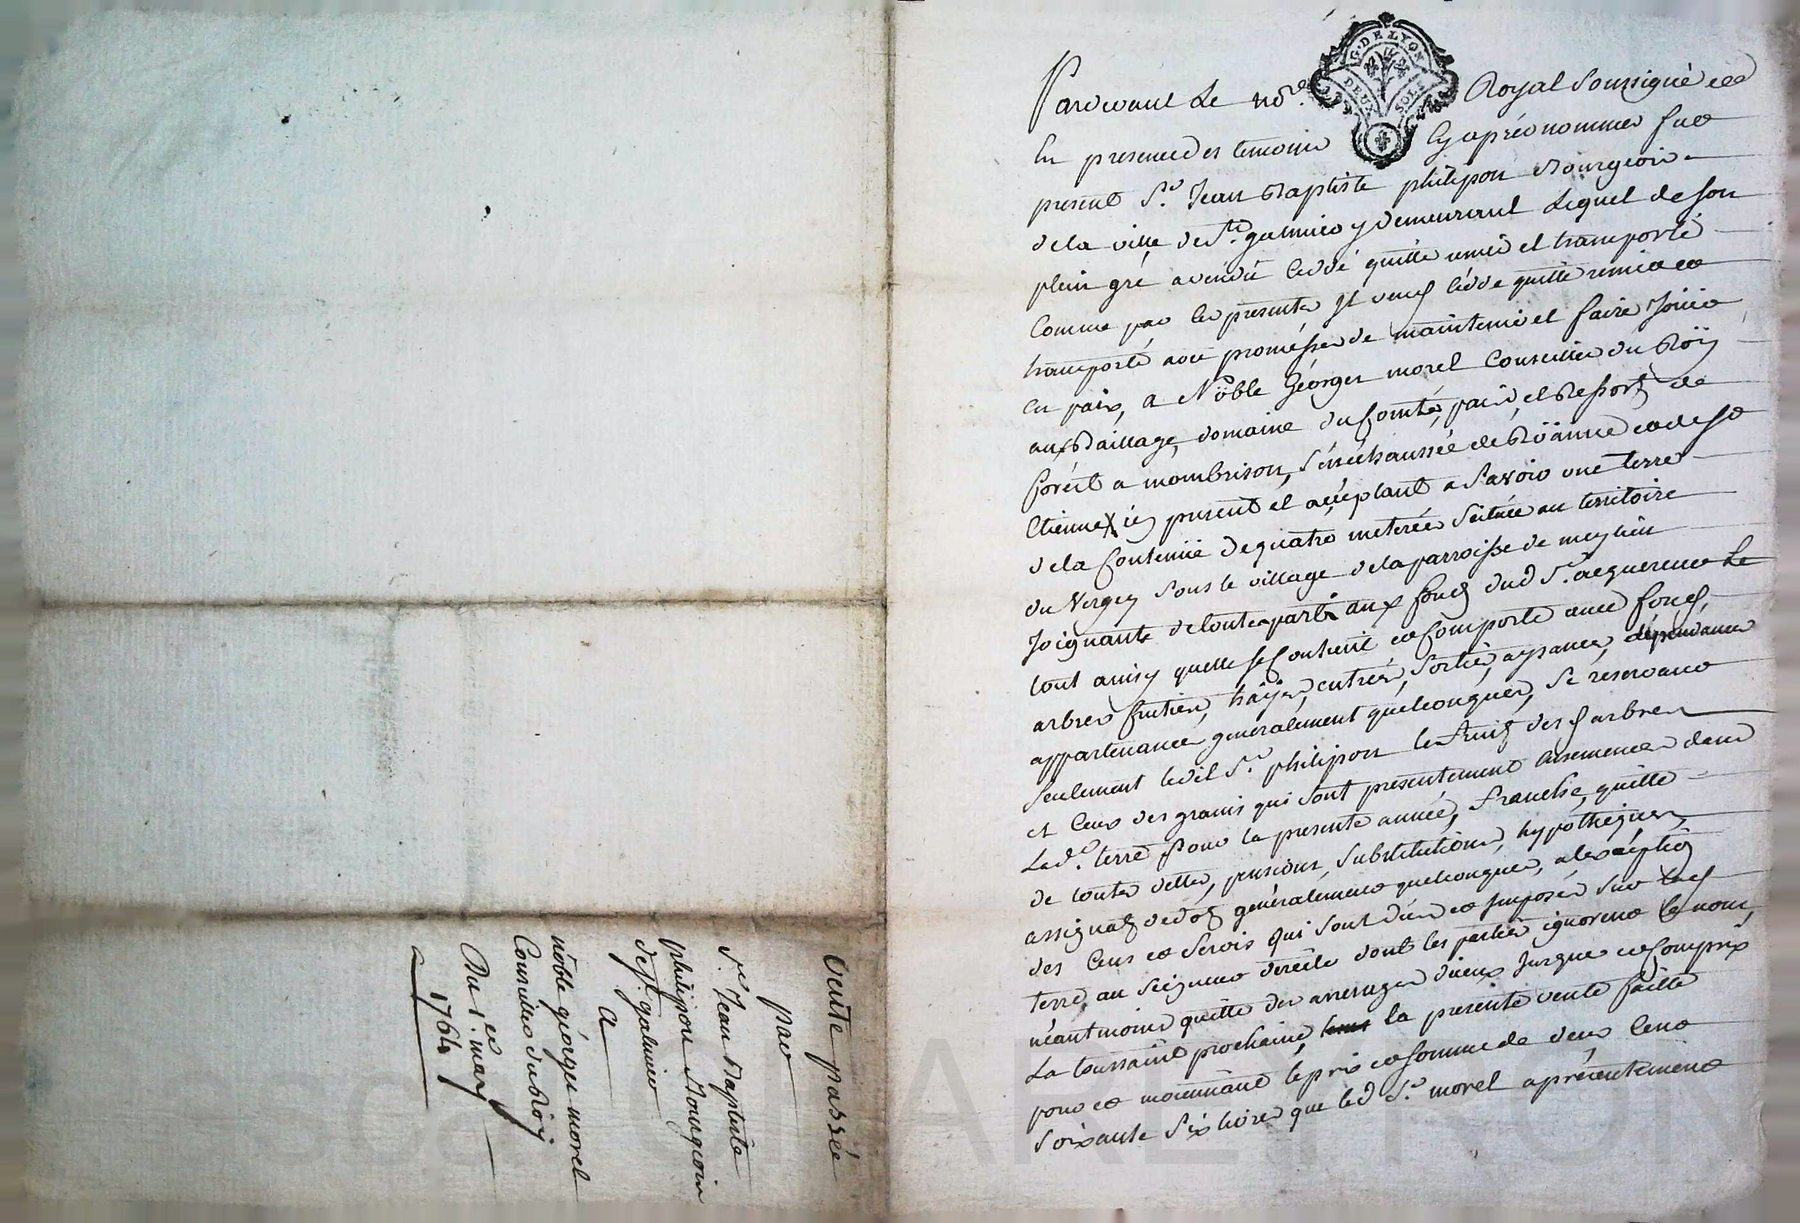 G. DE LYON
DEUX SOLS
Pardevant Le no.re Royal soussigné et
En presence des temoins cy aprés nommés fut
present S.r Jean Baptiste philipon Bourgeois
de la ville de S.t galmier y demeurant Lequel de son
plein gré a vendû ceddé quitté remis et transporté
Comme par les presentes Il vend cédde quitte remet et
transporte avec promesse de maintenir et faire Joüir
en paix, a Nöble Géorges morel Conseiller du Röy
aux Baillage, domaine du Comté, païs, et Ressort de
forést a mombrison, sénéchaussée de Röanne et de S.t
Etienne icy present et acceptant a Savoir une terre
de la Contenüe de quatre meterées Scituée au territoire
du Verger Sous le village de la parroisse de meylieu
Joignante de toutes parts aux fonds dud S.r acquereur Le
tout ainsy quelle se Contient et Comporte avec fonds,
arbres fruitiers, hayes, entrées, Sorties, aysances, dépendances
appartenances generalement quelconques, Se reservant
seulement ledit S.r philipon les fruits des arbres
et Ceux des grains qui sont presentement ensemencés dans
Lad.e terre pour la presente année, franche, quitte
de toutes dettes, pensions, substitutions, hypothéques,
assignats de dot généralement quelconques, a lexception
des Cens et Servis qui sont dûs et Imposés sur lad
terre au Seigneur dirécte dont les parties ignorent le nom,
néantmoins quitte des arrerages Dieux Jusques et Compris
La toussaint prochaine, la presente vente faitte
pour et moiennant le prix et somme de deux Cent
Soixante Six livres que led S.r morel a présentement
vente passée
par
S.r Jean Baptiste
philippon Bourgeois
de S.t galmier
A
nöble géorges morel
Conseiller du Röy
Du 1.er mars
1764